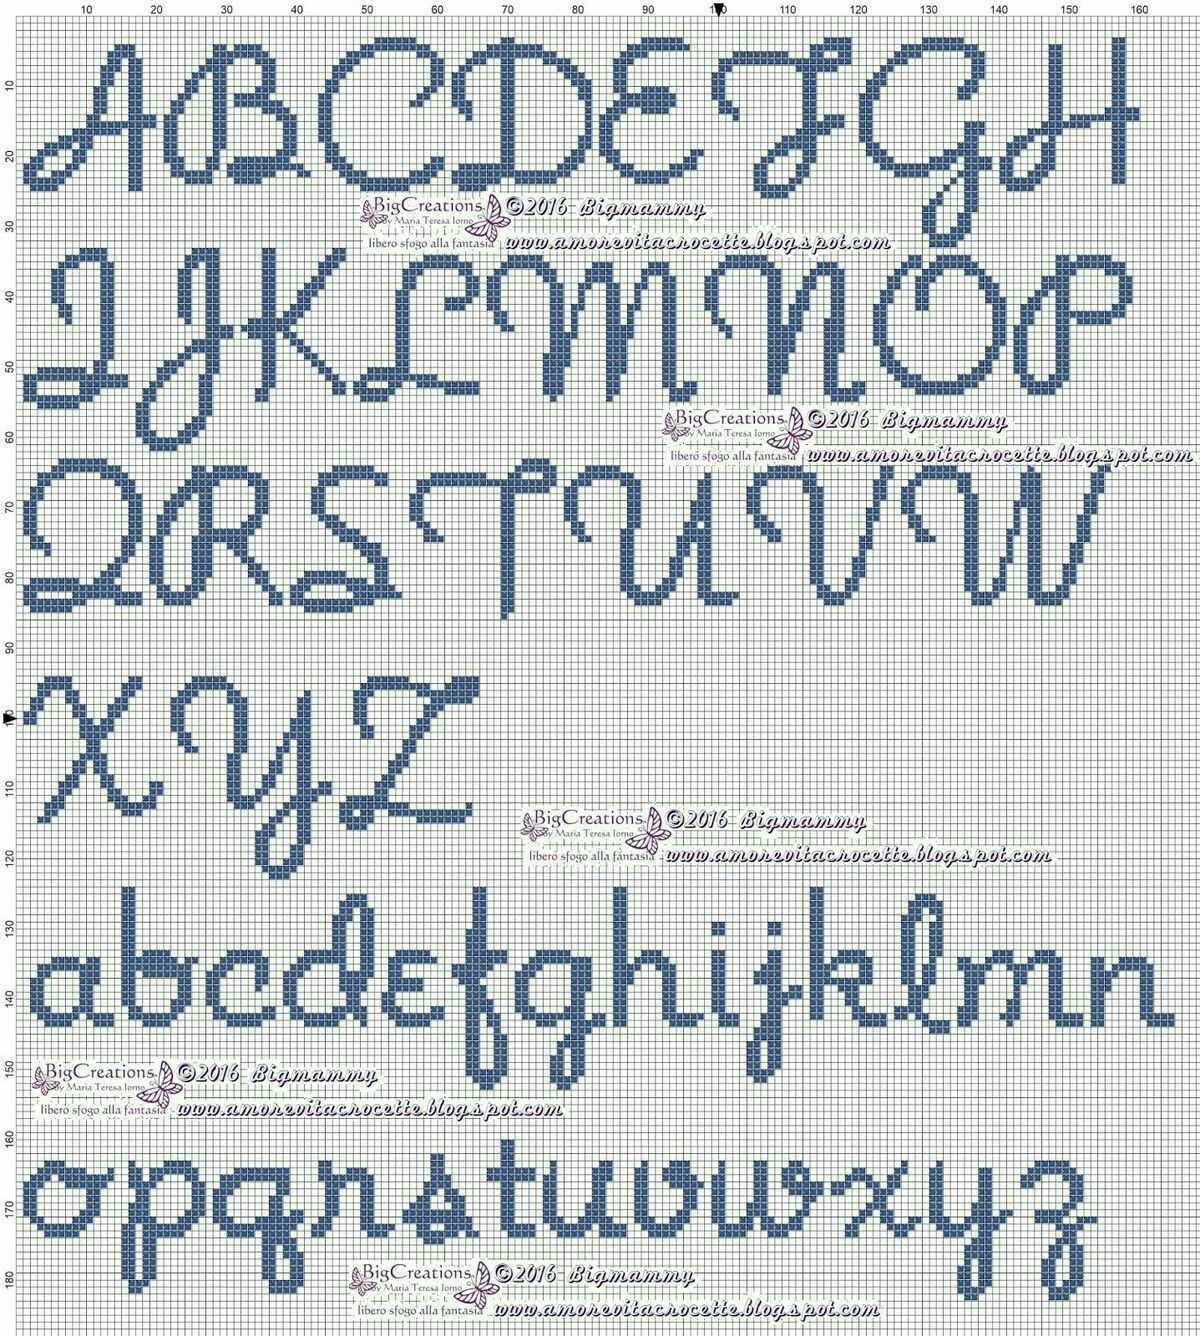 10 20 30 40 50 60 70 80 90 100 110 120 130 140 150 160
10
A B C D E F G H
20
BigCreations ©2016 Bigmammy
by Maria Teresa Iorno
30
libero sfogo alla fantasia www.amorevitacrocette.blogspot.com
40
I J K L M N O P
50
BigCreations ©2016 Bigmammy
by Maria Teresa Iorno
60
libero sfogo alla fantasia www.amorevitacrocette.blogspot.com
70
Q R S T U V W
80
90
100
X Y Z
110
BigCreations ©2016 Bigmammy
by Maria Teresa Iorno
120
libero sfogo alla fantasia www.amorevitacrocette.blogspot.com
130
a b c d e f g h i j k l m n
140
150
BigCreations ©2016 Bigmammy
by Maria Teresa Iorno
libero sfogo alla fantasia www.amorevitacrocette.blogspot.com
160
o p q r s t u v w x y z
170
180
BigCreations ©2016 Bigmammy
by Maria Teresa Iorno
libero sfogo alla fantasia www.amorevitacrocette.blogspot.com